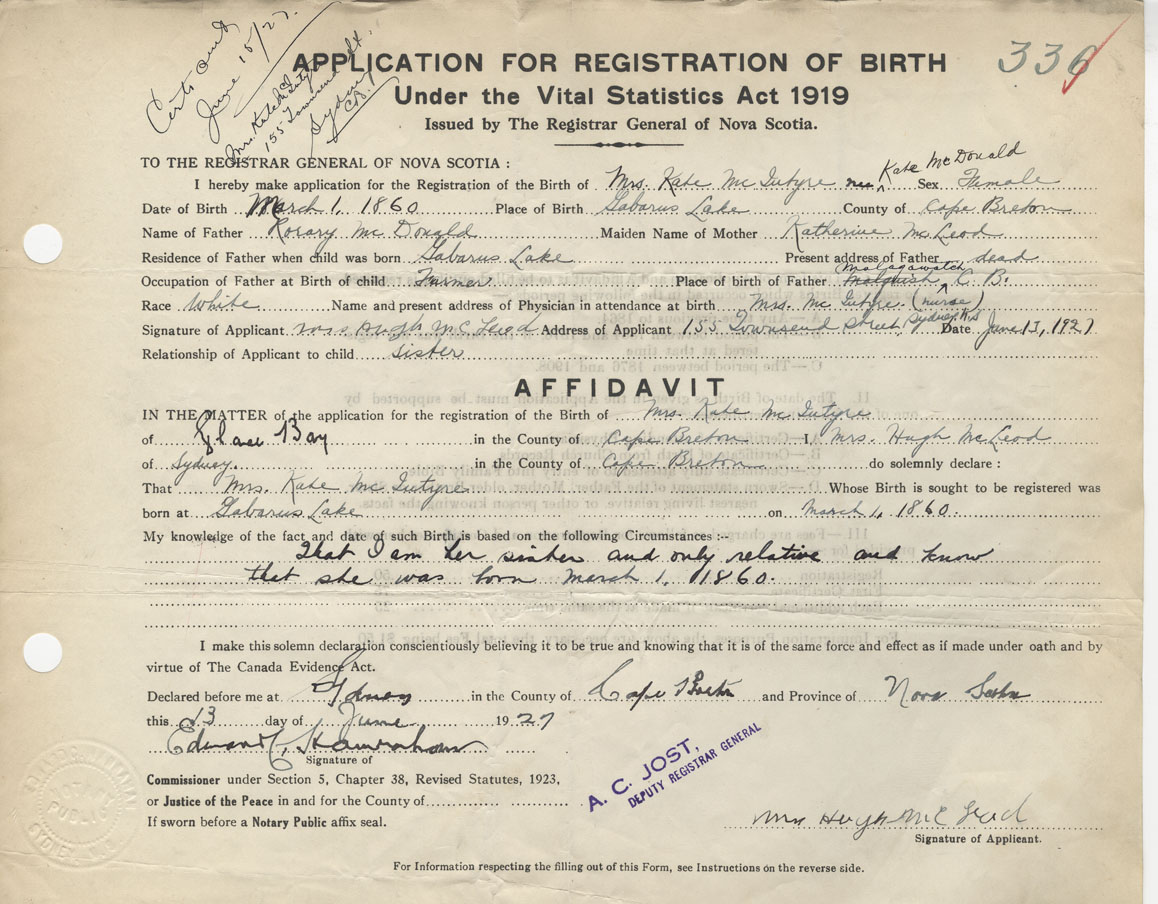 Certs out
June 15/27.
Mrs. Kate McIntyre
155 Townsend St.
Sydney
C.B.
336
APPLICATION FOR REGISTRATION OF BIRTH
Under the Vital Statistics Act 1919
Issued by The Registrar General of Nova Scotia.
TO THE REGISTRAR GENERAL OF NOVA SCOTIA :
Kate McDonald
I hereby make application for the Registration of the Birth of Mrs. Kate McIntyre nee Sex Female
Date of Birth March 1, 1860 Place of Birth Gabarus Lake County of Cape Breton
Name of Father Rosary McDonald Maiden Name of Mother Katherine McLeod
Residence of Father when child was born Gabarus Lake Present address of Father dead
Malagawatch
Occupation of Father at Birth of child Farmer Place of birth of Father C. B.
Race White Name and present address of Physician in attendance at birth Mrs. McIntyre (nurse)
Signature of Applicant Mrs Hugh McLeod Address of Applicant 155 Townsend Street Sydney N.S Date June 13, 1927
Relationship of Applicant to child sister
AFFIDAVIT
IN THE MATTER of the application for the registration of the Birth of Mrs. Kate McIntyre
of Glace Bay in the County of Cape Breton I, Mrs. Hugh McLeod
of Sydney. in the County of Cape Breton do solemnly declare :
That Mrs. Kate McIntyre Whose Birth is sought to be registered was
born at Gabarus Lake on March 1, 1860.
My knowledge of the fact and date of such Birth is based on the following Circumstances :--
That I am her sister and only relative and know
that she was born March 1, 1860.
I make this solemn declaration conscientiously believing it to be true and knowing that it is of the same force and effect as if made under oath and by
virtue of The Canada Evidence Act.
Declared before me at Sydney in the County of Cape Breton and Province of Nova Scotia
this 13 day of June 1927
Signature of
Commissioner under Section 5, Chapter 38, Revised Statutes, 1923,
or Justice of the Peace in and for the County of
If sworn before a Notary Public affix seal.
A. C. JOST,
DEPUTY REGISTRAR GENERAL
Mrs Hugh McLeod
Signature of Applicant.
For Information respecting the filling out of this Form, see Instructions on the reverse side.